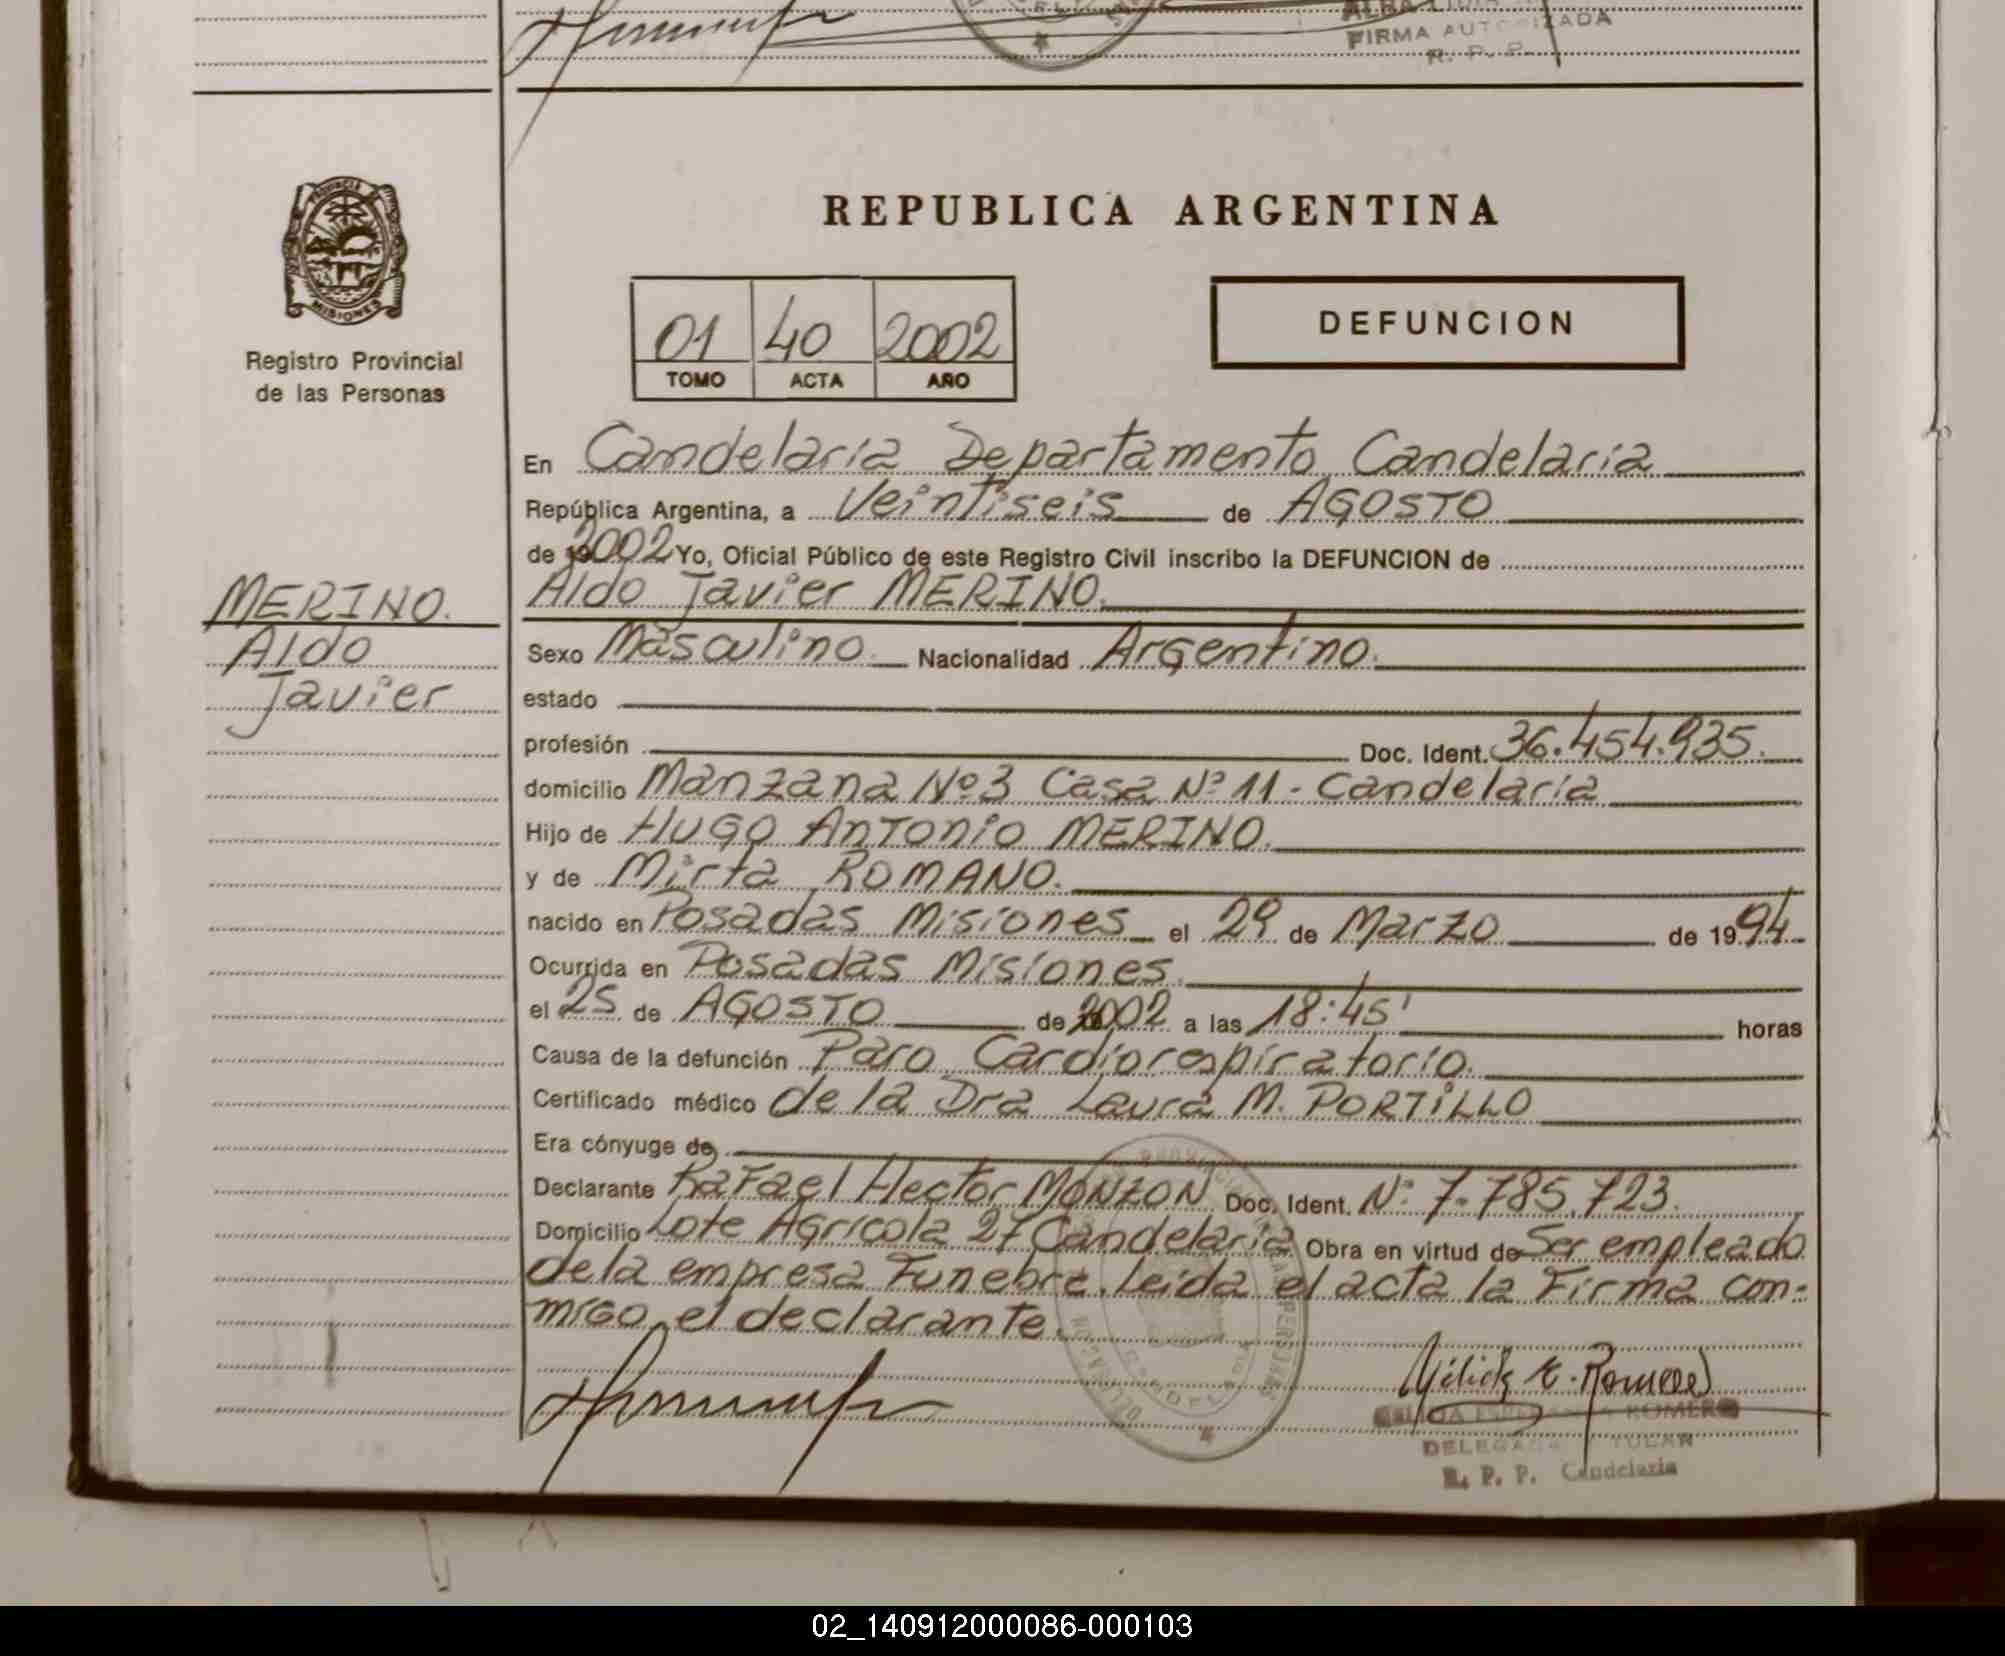 FIRMA AUTORIZADA
R. P. P.
PROVINCIA
MISIONES
Registro Provincial
de las Personas
REPUBLICA ARGENTINA
01 40 2002
TOMO ACTA AÑO
DEFUNCION
En Candelaria Departamento Candelaria
República Argentina, a Veintiseis de AGOSTO
de 2002 Yo, Oficial Público de este Registro Civil inscribo la DEFUNCION de
Aldo Javier MERINO.
MERINO.
Aldo
Javier
Sexo Masculino. Nacionalidad Argentino.
estado
profesión Doc. Ident. 36.454.935.
domicilio Manzana Nº 3 Casa Nº 11 - Candelaria
Hijo de HUGO ANTONIO MERINO.
y de Mirta ROMANO.
nacido en Posadas Misiones el 29 de Marzo de 1994
Ocurrida en Posadas Misiones.
el 25 de AGOSTO de 2002 a las 18:45' horas
Causa de la defunción Paro Cardiorespiratorio.
Certificado médico de la Dra Laura M. PORTILLO
Era cónyuge de
Declarante Rafael Hector MONZON Doc. Ident. Nº 7.785.723.
Domicilio Lote Agricola 27 Candelaria Obra en virtud de Ser empleado
de la empresa Funebre. Leida el acta la Firma con-
migo el declarante.
Romero
ROMERO
DELEGADA TITULAR
R. P. P. Candelaria
02_140912000086-000103